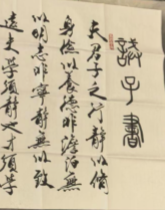 誡子書
夫君子之行靜以修
身儉以養德非澹泊無
以明志非寧靜無以致
遠夫學須靜也才須學